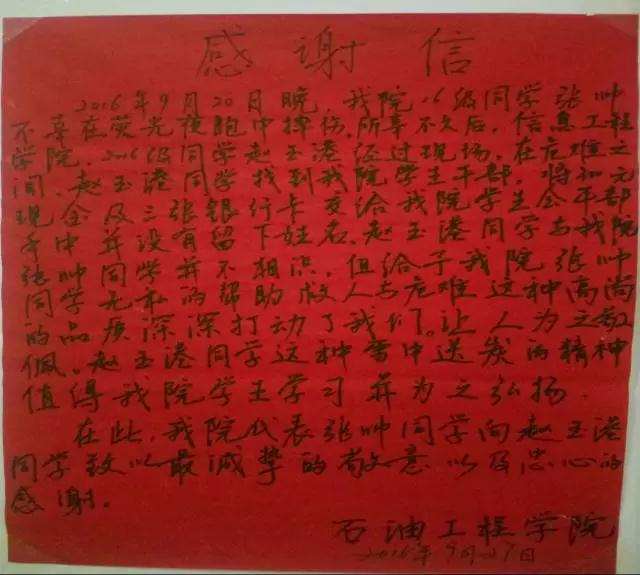 感谢信
2016年9月20日晚，我院16级同学张帅
不幸在荧光夜跑中摔伤，所幸不久后，信息工程
学院，2016级同学赵玉港经过现场，在危难之
间，赵玉港同学找到我院学生干部，将
现金及三张银行卡交给我院学生会干部
手中并没有留下姓名，赵玉港同学与我院
张帅同学并不相识，但给予我院张帅
同学无私的帮助救人与危难这种高尚
的品质深深打动了我们。让人为之敬
佩。赵玉港同学这种雪中送炭的精神
值得我院学生学习并为之弘扬．
在此，我院代表张帅同学向赵玉港
同学致以最诚挚的敬意以及忠心的
感谢。
石油工程学院
2016年9月27日